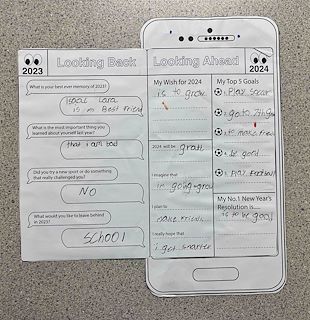 2023
Looking Back
What is your best ever memory of 2023?
Isaac Lara
is m Best friend
What is the most important thing you
learned about yourself last year?
that i am bad
Did you try a new sport or do something
that really challenged you?
NO
What would you like to leave behind
in 2023?
SChOOl
Looking Ahead
2024
My Wish for 2024
is to grow
2024 will be
I imagine that
im going to grow
I plan to
make friends
I really hope that
i get smarter
My Top 5 Goals
Play socer
go to 7th
to make friends
be good
Play football
My No.1 New Year's
Resolution is....
is to be good